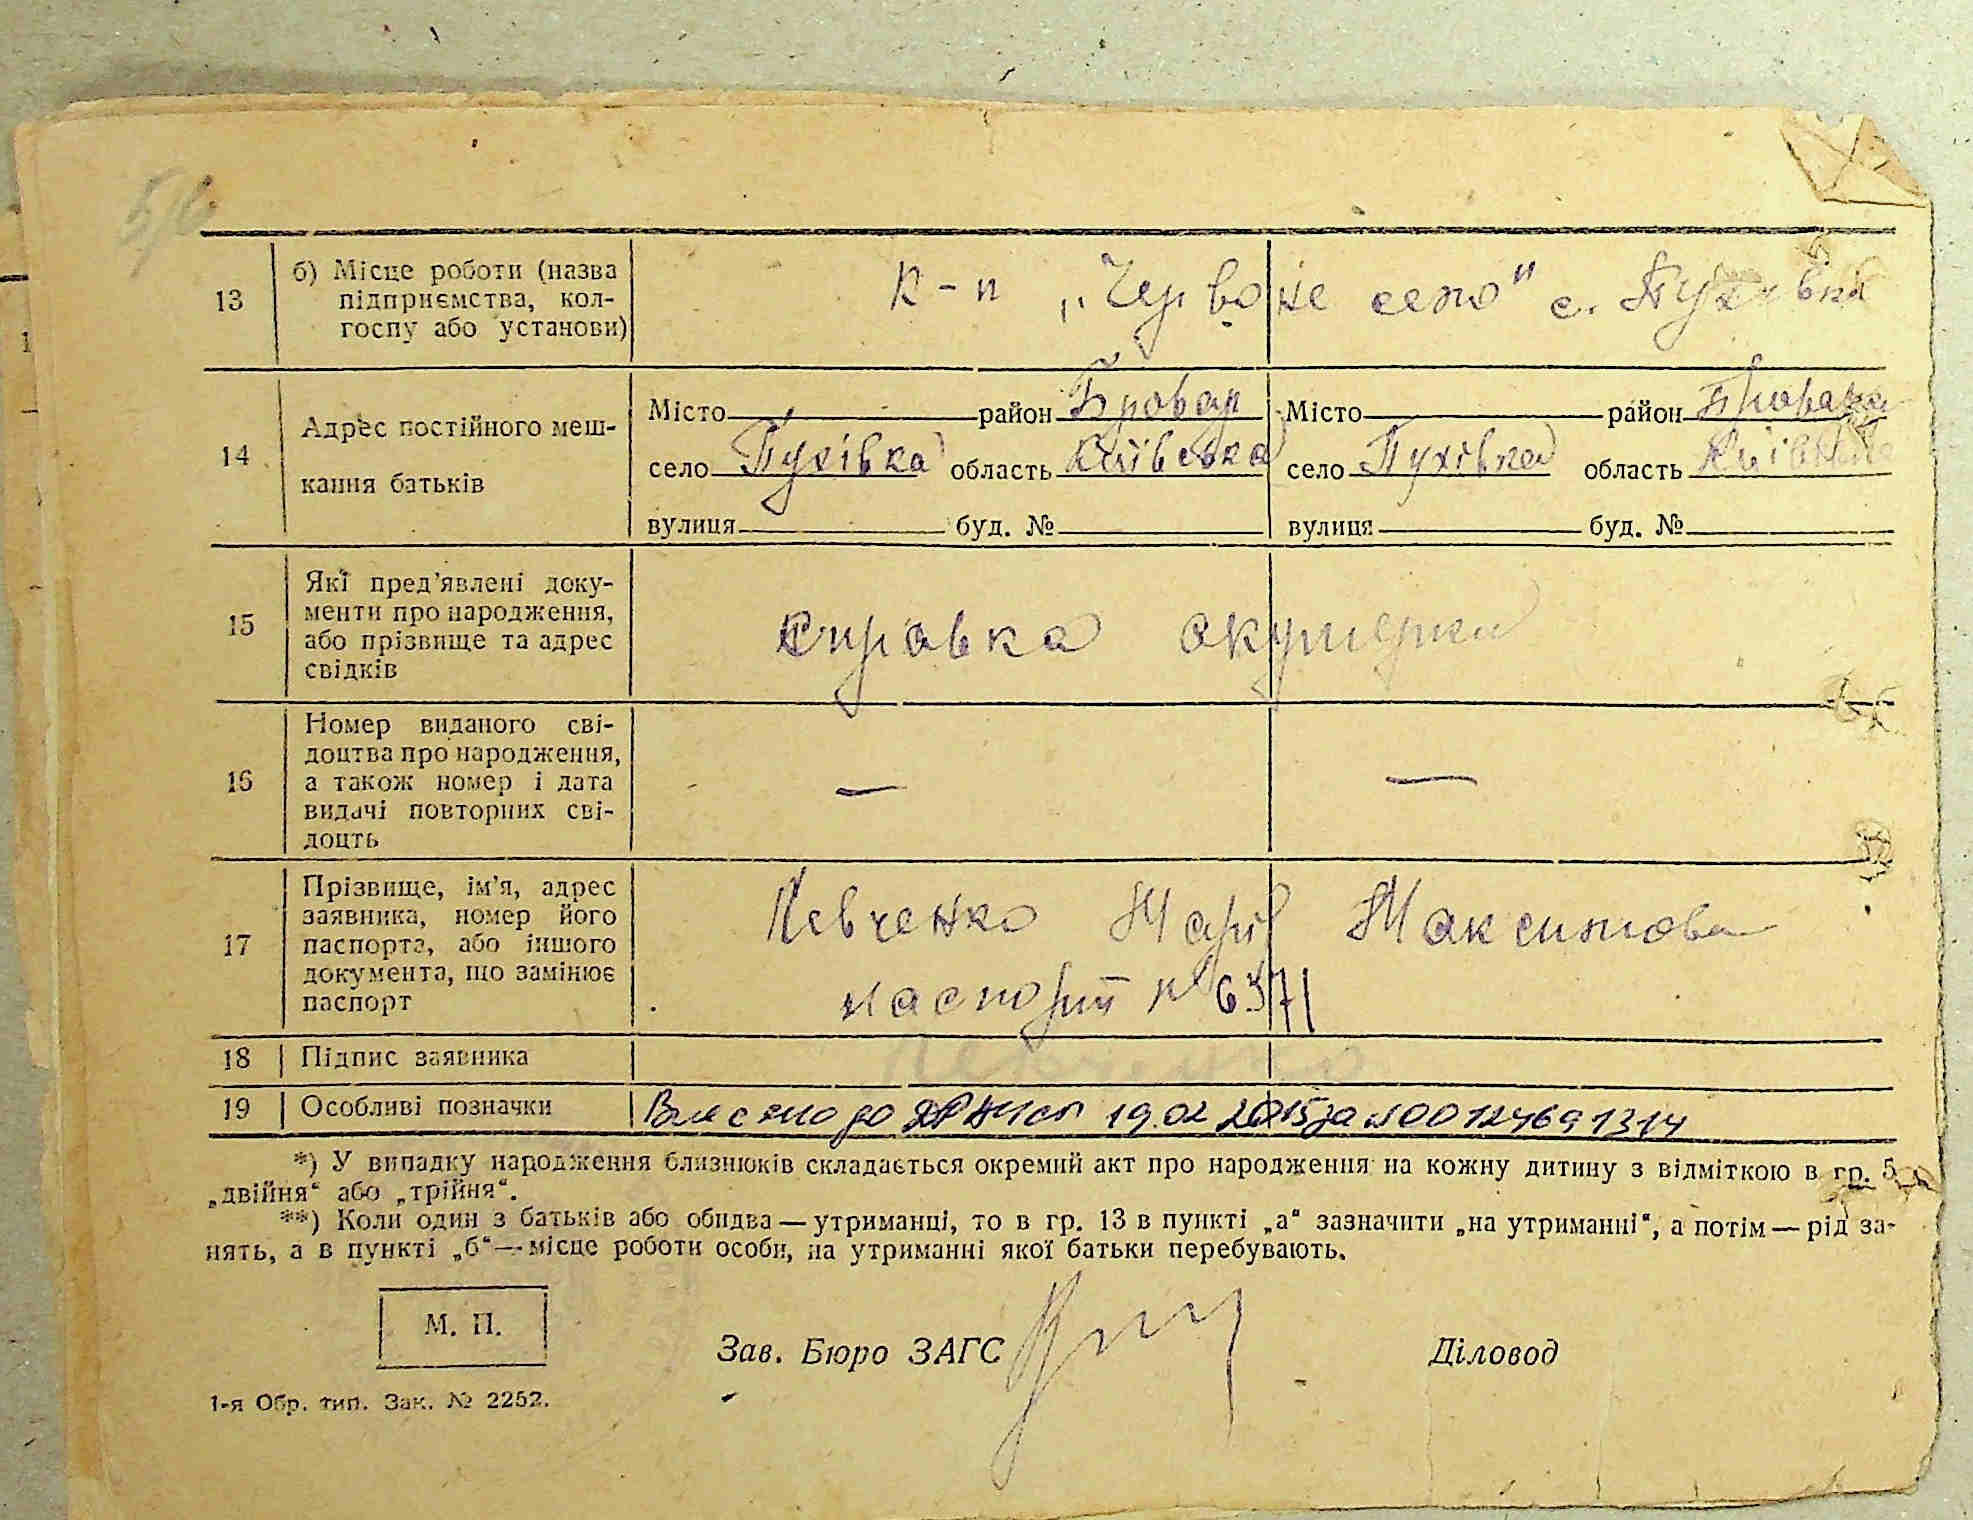 13 б) Місце роботи (назва підприємства, колгоспу або установи)
к-п „Червоне село" с. Пухівка
14 Адрес постійного мешкання батьків
Місто район Бровар Місто район
село Пухівка область Київська село Пухівка область Київська
вулиця буд. № вулиця буд. №
15 Які пред'явлені документи про народження, або прізвище та адрес свідків
справка акушерки
16 Номер виданого свідоцтва про народження, а також номер і дата видачі повторних свідоцть
— —
17 Прізвище, ім'я, адрес заявника, номер його паспорта, або іншого документа, що замінює паспорт
Левченко Марія Максимовна
паспорт № 6371
18 Підпис заявника
Левченко
19 Особливі позначки
Внесено до ДРАЦСГ 19.02 2015 за №00124691314
*) У випадку народження близнюків складається окремий акт про народження на кожну дитину з відміткою в гр. 5
„двійня“ або „трійня“.
**) Коли один з батьків або обидва — утриманці, то в гр. 13 в пункті „а“ зазначити „на утриманні“, а потім — рід за-
нять, а в пункті „б“ — місце роботи особи, на утриманні якої батьки перебувають.
М. П.
Зав. Бюро ЗАГС Діловод
1-я Обр. тип. Зак. № 2252.